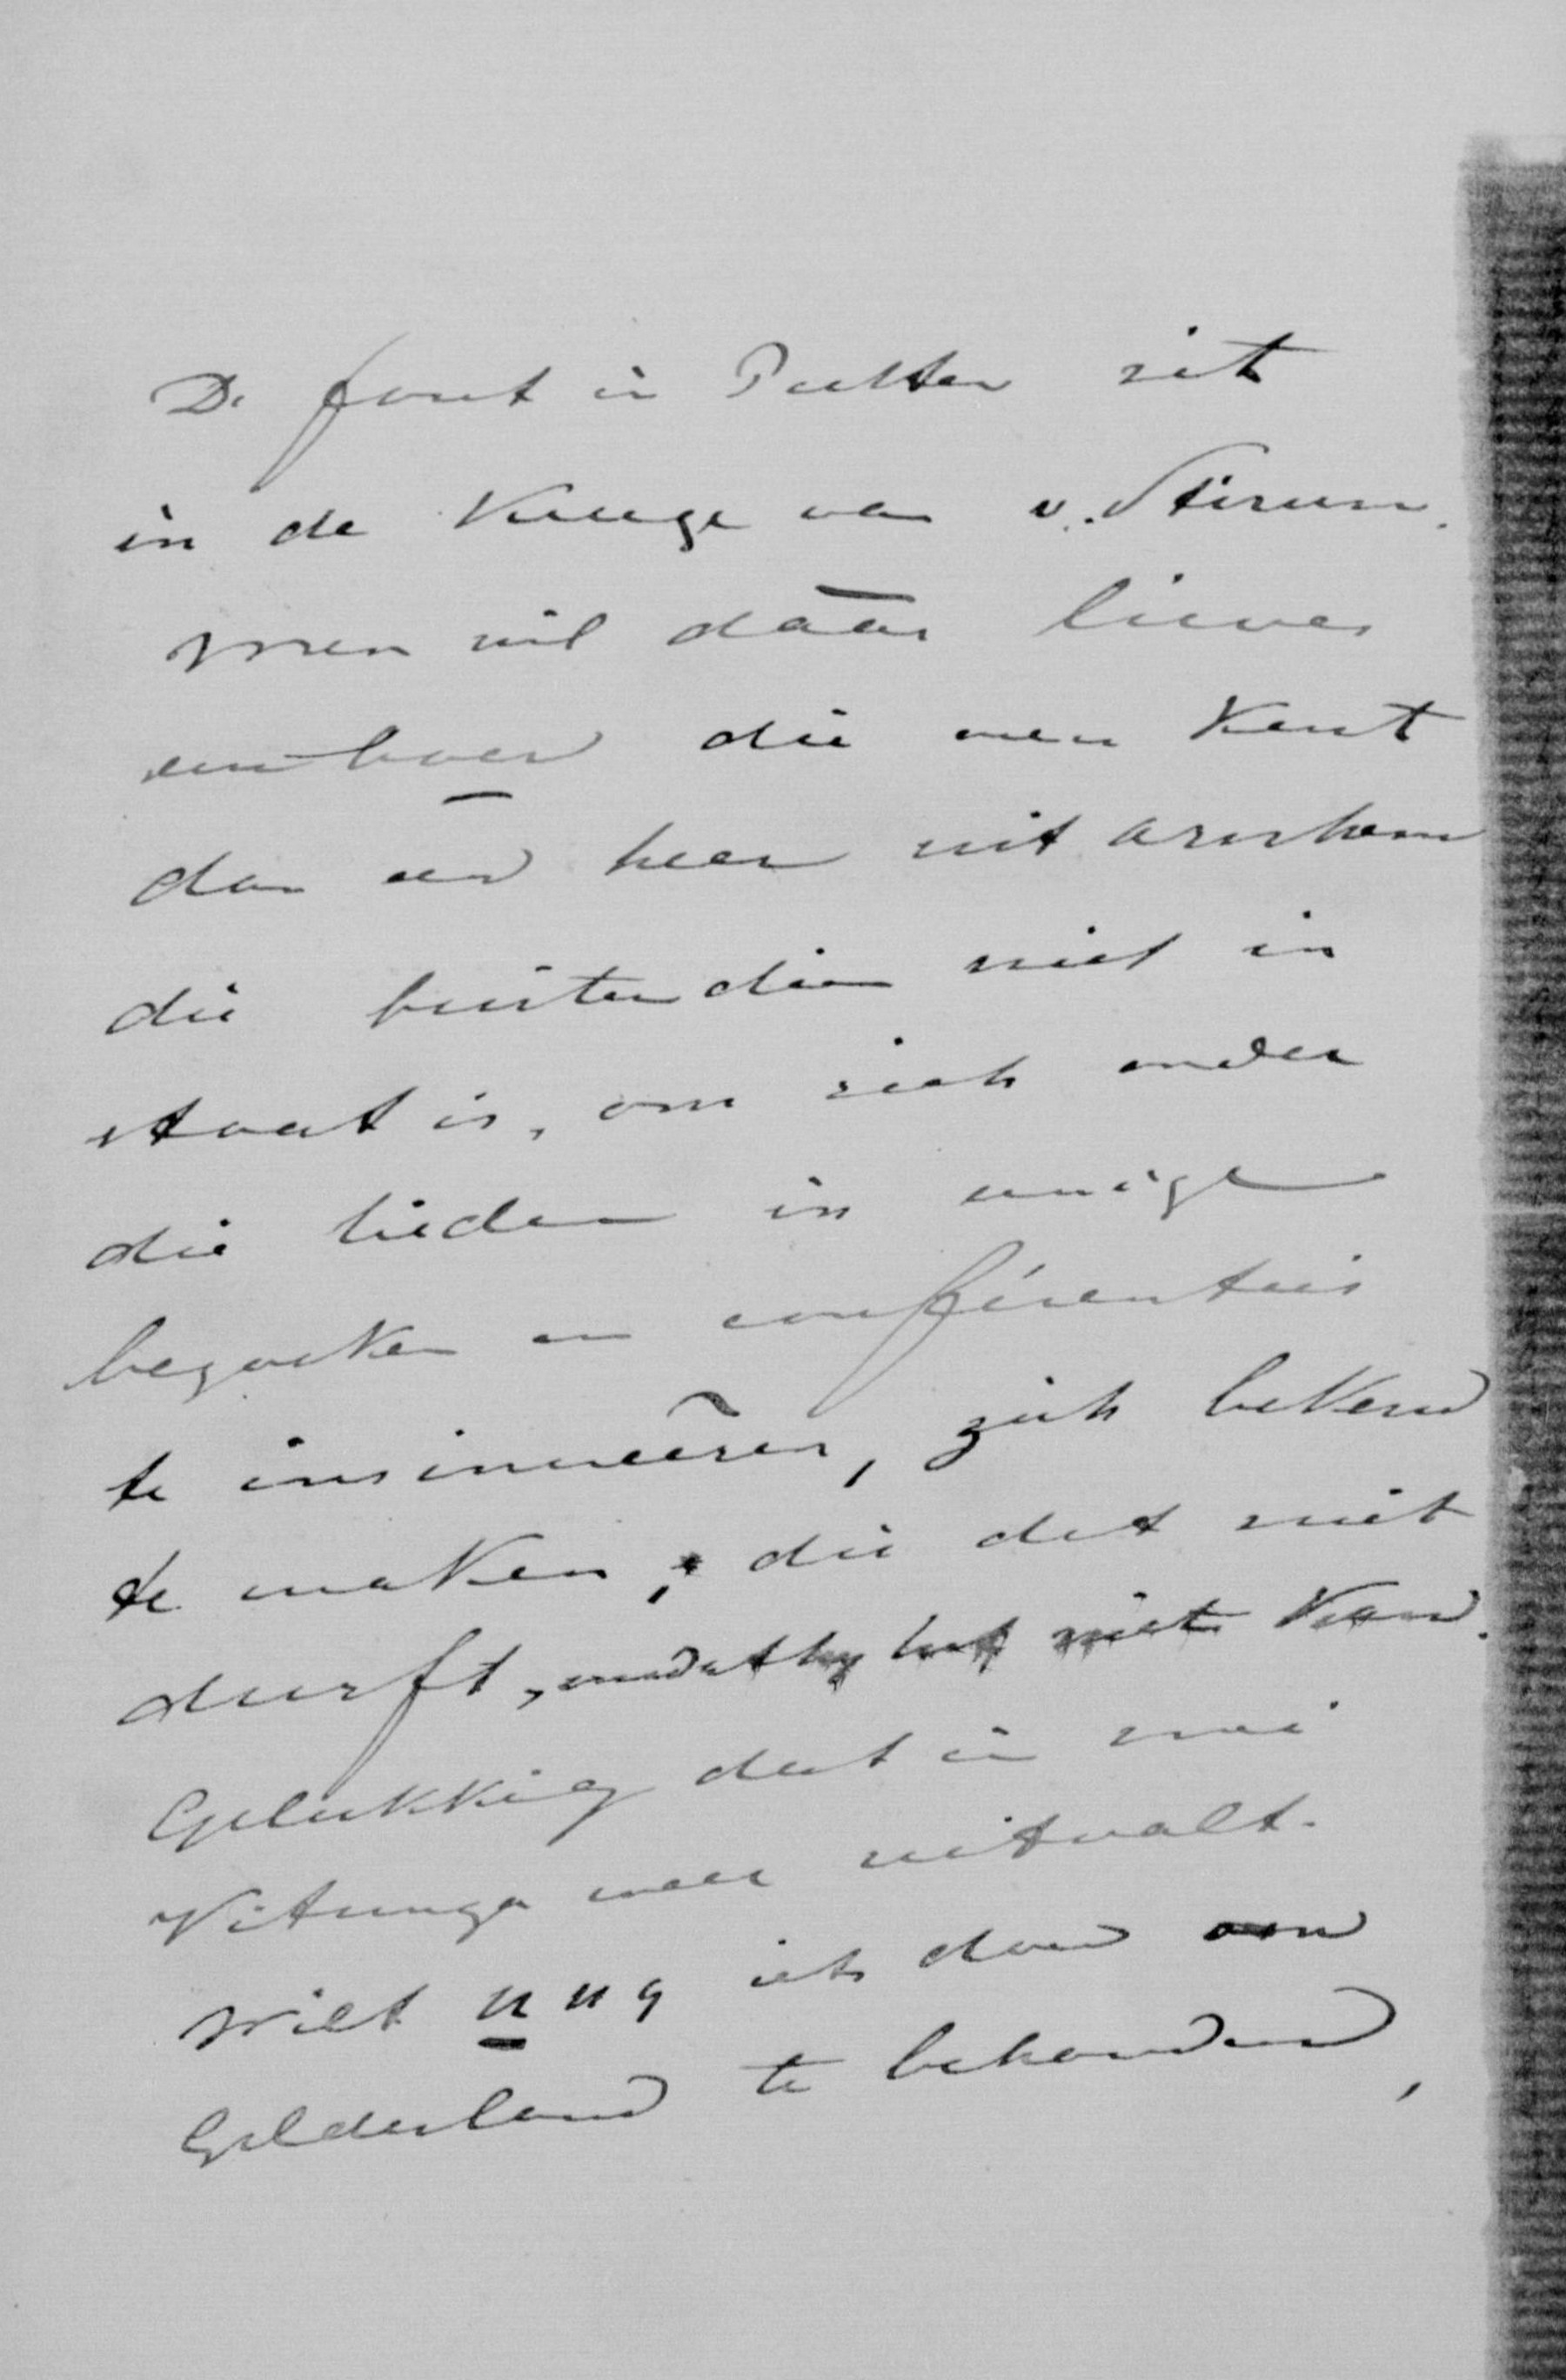 De fout in Putten zit
in de Keuze van v. Stirum.
Men wil daar liever
een boer die men Kent
dan een heer uit Arnhem
die buitendien niet in
staat is, om zich onder
die lieden in eenige
bezoeken en conférenties
te insinueeren, zich bekend
te maken; die dat niet
durft, omdat hy het niet Kan.
Gelukkig dat in
weer uitvalt.
Wilt u nog iets doen om
Gelderland te behouden,